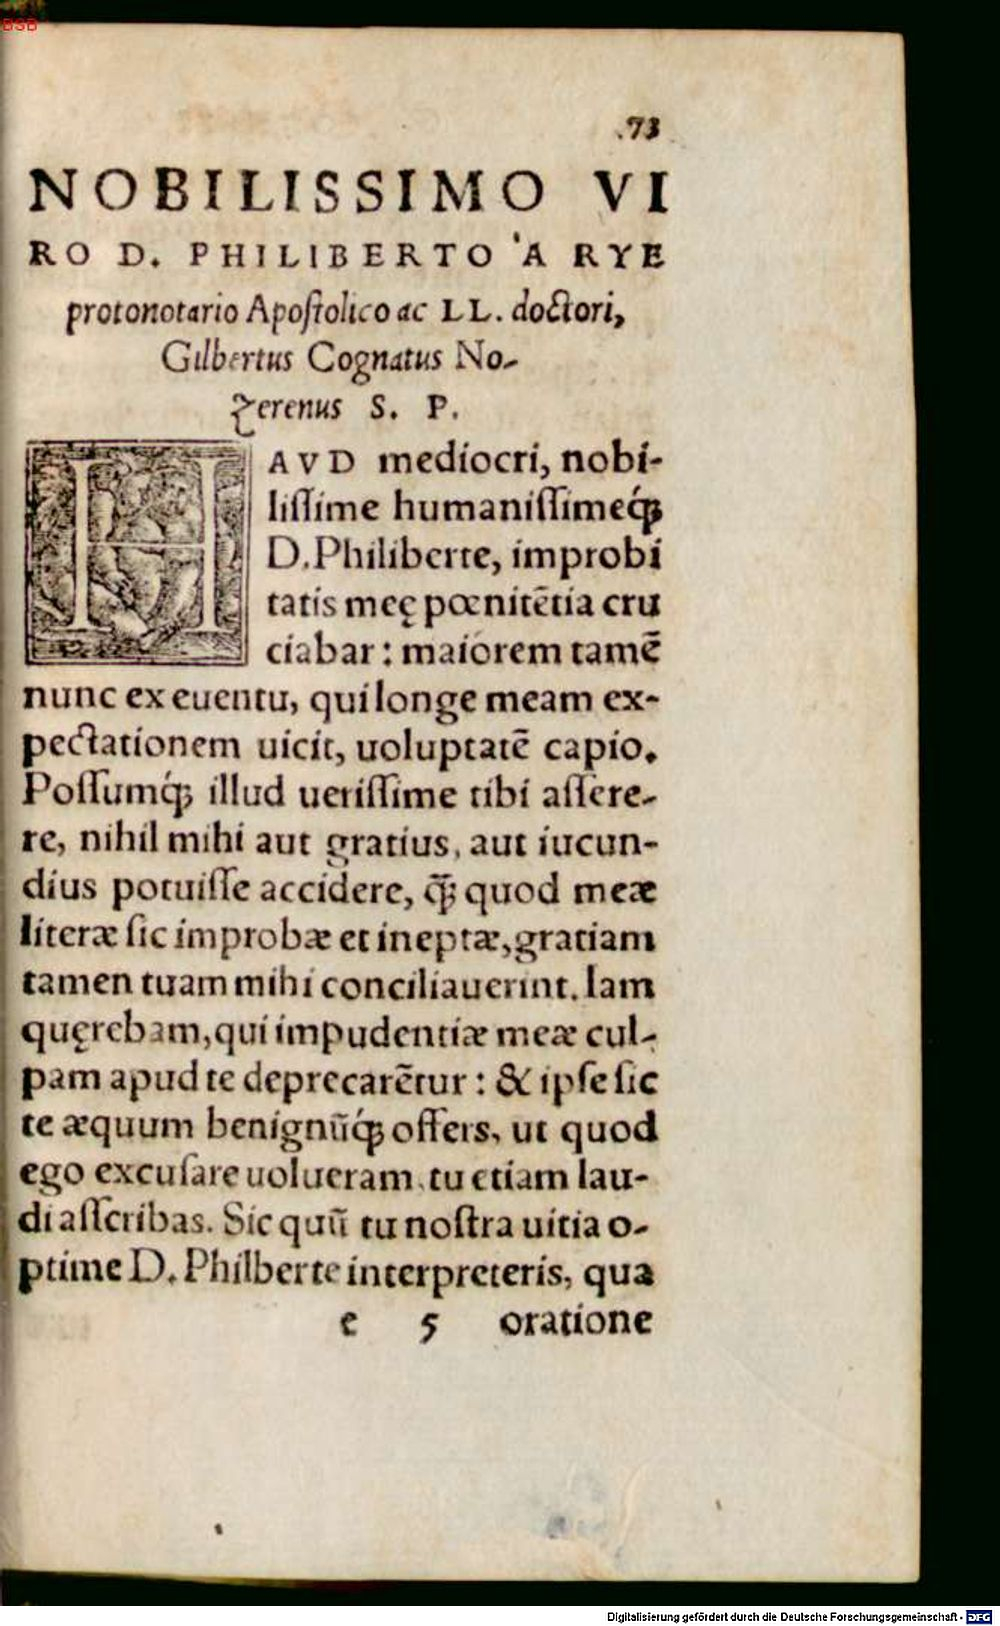 BSB
.73
NOBILISSIMO VI
RO D. PHILIBERTO 'A RYE
protonotario Apoſtolico ac LL. doctori,
Gilbertus Cognatus No-
zerenus S. P.
HAVD mediocri, nobi-
liſſime humaniſſimeq́;
D. Philiberte, improbi
tatis meę pœnitētia cru
ciabar: maiorem tamē
nunc ex euentu, qui longe meam ex-
pectationem uicit, uoluptatē capio.
Poſſumq́; illud ueriſſime tibi aſſere-
re, nihil mihi aut gratius, aut iucun-
dius potuiſſe accidere, q̃; quod meæ
literæ ſic improbæ et ineptæ, gratiam
tamen tuam mihi conciliauerint. Iam
quęrebam, qui impudentiæ meæ cul-
pam apud te deprecarētur: & ipſe ſic
te æquum benignūq́; offers, ut quod
ego excuſare uolueram, tu etiam lau-
di aſſcribas. Sic quū tu noſtra uitia o-
ptime D. Philberte interpreteris, qua
e 5 oratione
Digitalisierung gefördert durch die Deutsche Forschungsgemeinschaft - DFG